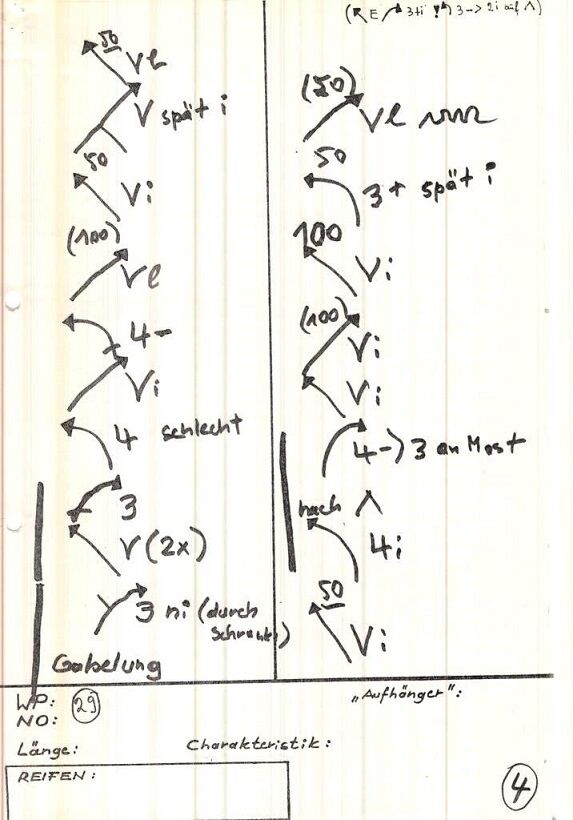 50
Ve
V spät i
50
Vi
(100)
Ve
4-
Vi
4 schlecht
3
V (2x)
3 ni (durch
Schranke)
Gabelung
(50)
Ve
50
3+ spät i
100
Vi
(100)
Vi
Vi
4-) 3 an Mast
nach
4i
50
Vi
WP: 29
NO:
„Aufhänger":
Länge:
Charakteristik:
REIFEN:
4